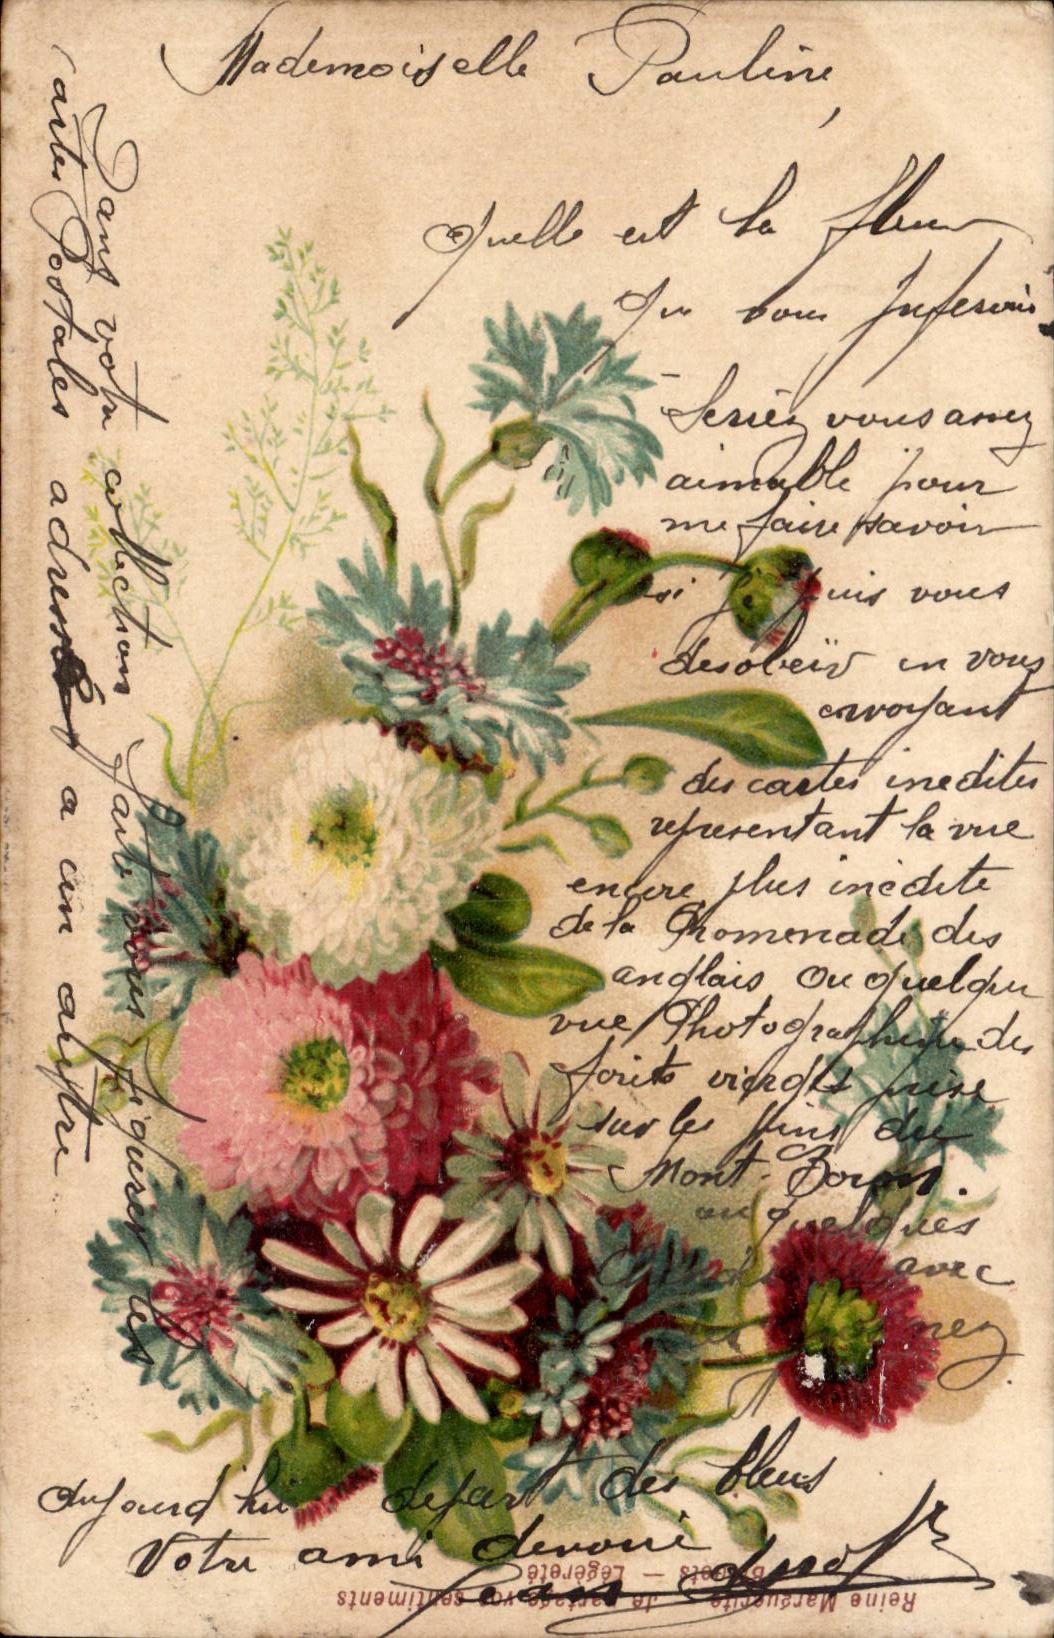 Mademoiselle Pauline,
Quelle est la fleur
que vous préférez
Seriez vous assez
aimable pour
me faire savoir
si je puis vous
desobeïr en vous
envoyant
des cartes inedites
représentant la vue
encore plus inédite
de la Promenade des
anglais ou quelque
vue Photographique des
forêts vierges prise
sur les pins du
Mont-Boron.
ou quelques
avec
nez
aujourd'hui départ des bleus
Votre ami devoué
Jean
Dans votre collection faite vous figurer les
cartes Postales adressées a un artiste
Reine Marguerite Je partage vos sentiments
Légèreté